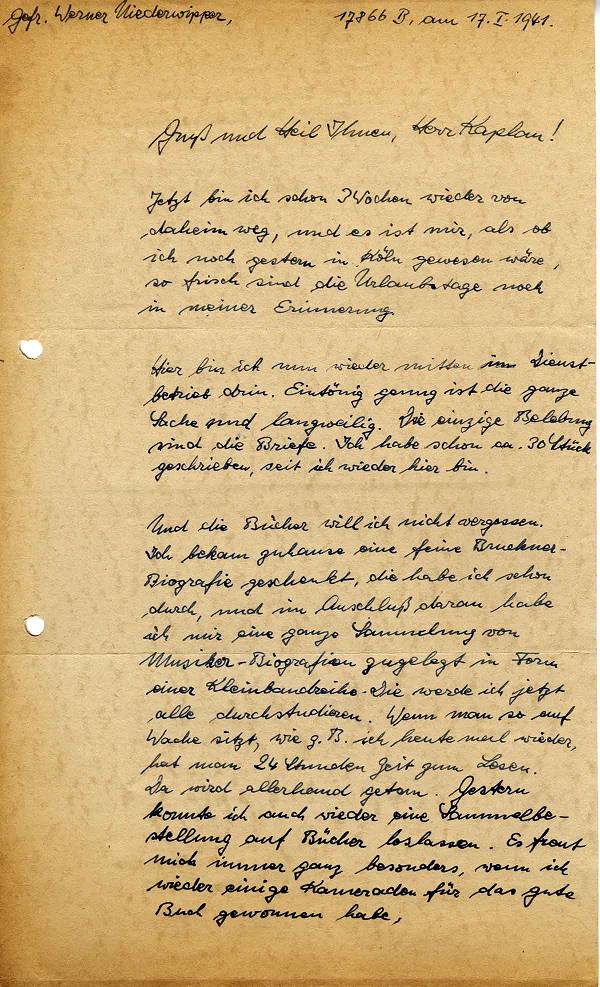 Gefr. Werner Niederwipper, 17866 B, am 17.I.1941.
Gruß und Heil Ihnen, Herr Kaplan!
Jetzt bin ich schon 3 Wochen wieder von
daheim weg, und es ist mir, als ob
ich noch gestern in Köln gewesen wäre,
so frisch sind die Urlaubstage noch
in meiner Erinnerung
Hier bin ich nun wieder mitten im Dienst-
betrieb drin. Eintönig genug ist die ganze
Sache und langweilig. Die einzige Belebung
sind die Briefe. Ich habe schon ca. 30 Stück
geschrieben, seit ich wieder hier bin.
Und die Bücher will ich nicht vergessen.
Ich bekam zuhause eine feine Bruckner-
Biografie geschenkt, die habe ich schon
durch, und im Anschluß daran habe
ich mir eine ganze Sammlung von
Musiker-Biografien zugelegt in Form
einer Kleinbandreihe. Die werde ich jetzt
alle durchstudieren. Wenn man so auf
Wache sitzt, wie z.B. ich heute mal wieder,
hat man 24 Stunden Zeit zum Lesen.
Da wird allerhand getan. Gestern
konnte ich auch wieder eine Sammelbe-
stellung auf Bücher loslassen. Es freut
mich immer ganz besonders, wenn ich
wieder einige Kameraden für das gute
Buch gewonnen habe,